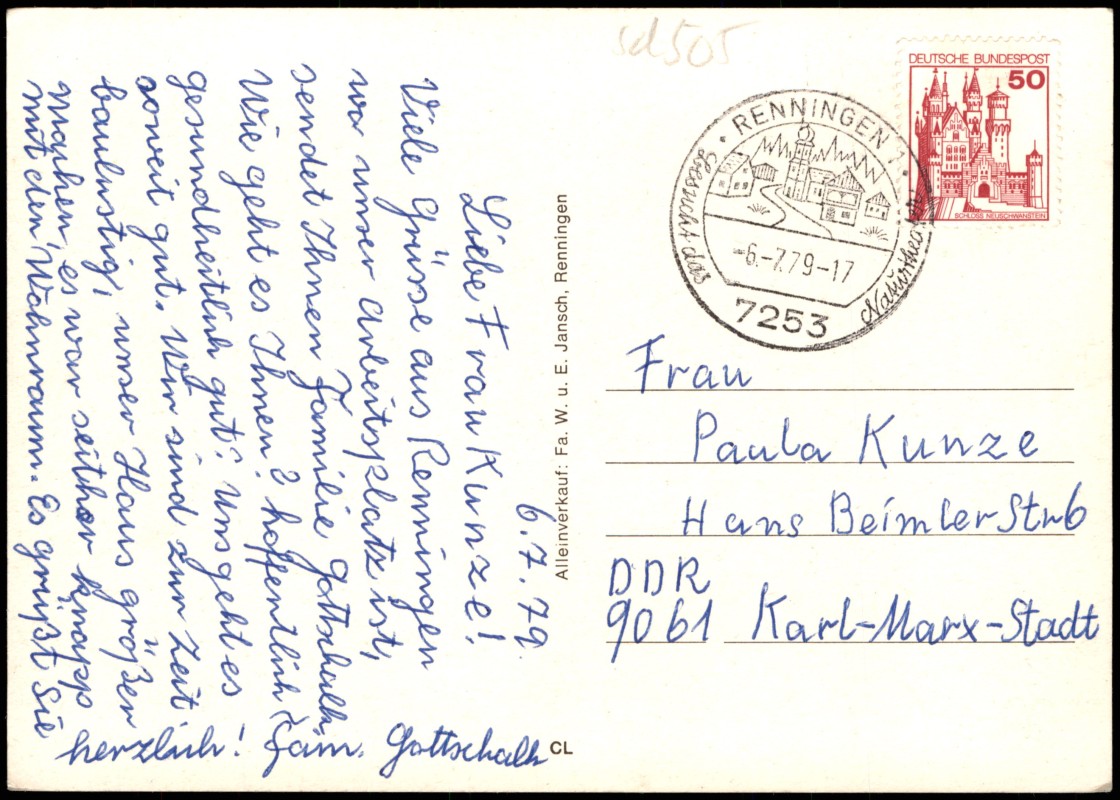 6.7.79.
Liebe Frau Kunze!
Viele Grüsse aus Renningen
wo unser Arbeitsplatz ist,
sendet Ihnen Familie Gottschalk
Wie geht es Ihnen? hoffentlich
gesundheitlich gut? Uns geht es
soweit gut. Wir sind zur Zeit
baulustig, unser Haus größer
machen, es war seither knapp
mit dem Wohnraum. Es grüßt Sie
herzlich! Fam. Gottschalk
Alleinverkauf: Fa. W. u. E. Jansch, Renningen
CL
sd505
DEUTSCHE BUNDESPOST
50
SCHLOSS NEUSCHWANSTEIN
RENNINGEN 1
-6.-7.79-17
7253
Besucht das Naturtheater
Frau
Paula Kunze
Hans Beimler Str 6
DDR
9061 Karl-Marx-Stadt